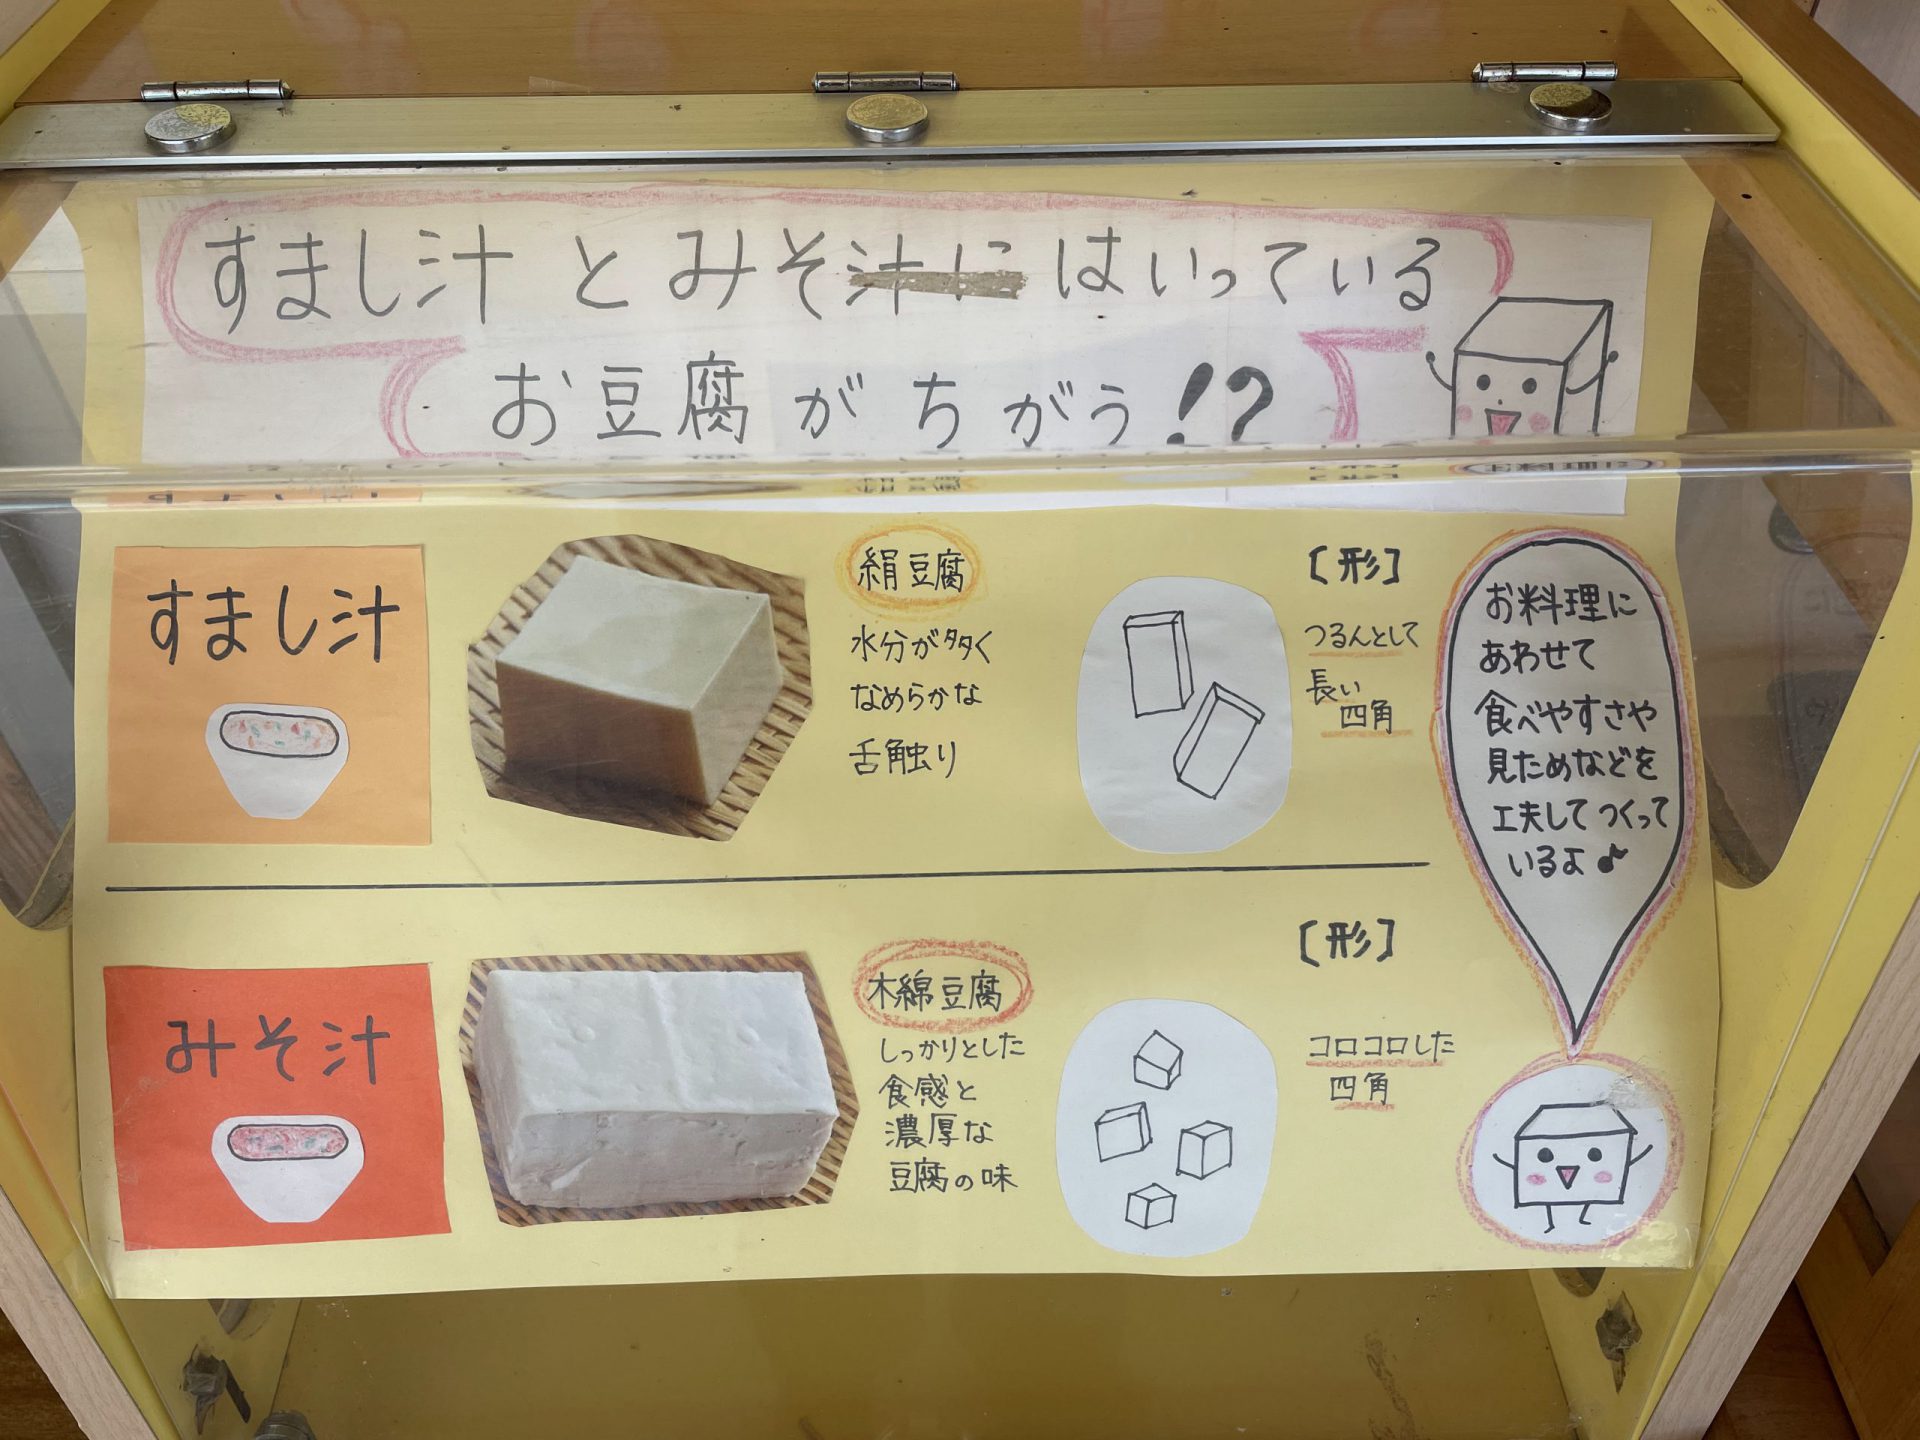 すまし汁とみそ汁にはいっている
お豆腐がちがう!?
すまし汁
絹豆腐
水分が多く
なめらかな
舌触り
[形]
つるんとして
長い
四角
みそ汁
木綿豆腐
しっかりとした
食感と
濃厚な
豆腐の味
[形]
コロコロした
四角
お料理に
あわせて
食べやすさや
見ためなどを
工夫してつくって
いるよ♪